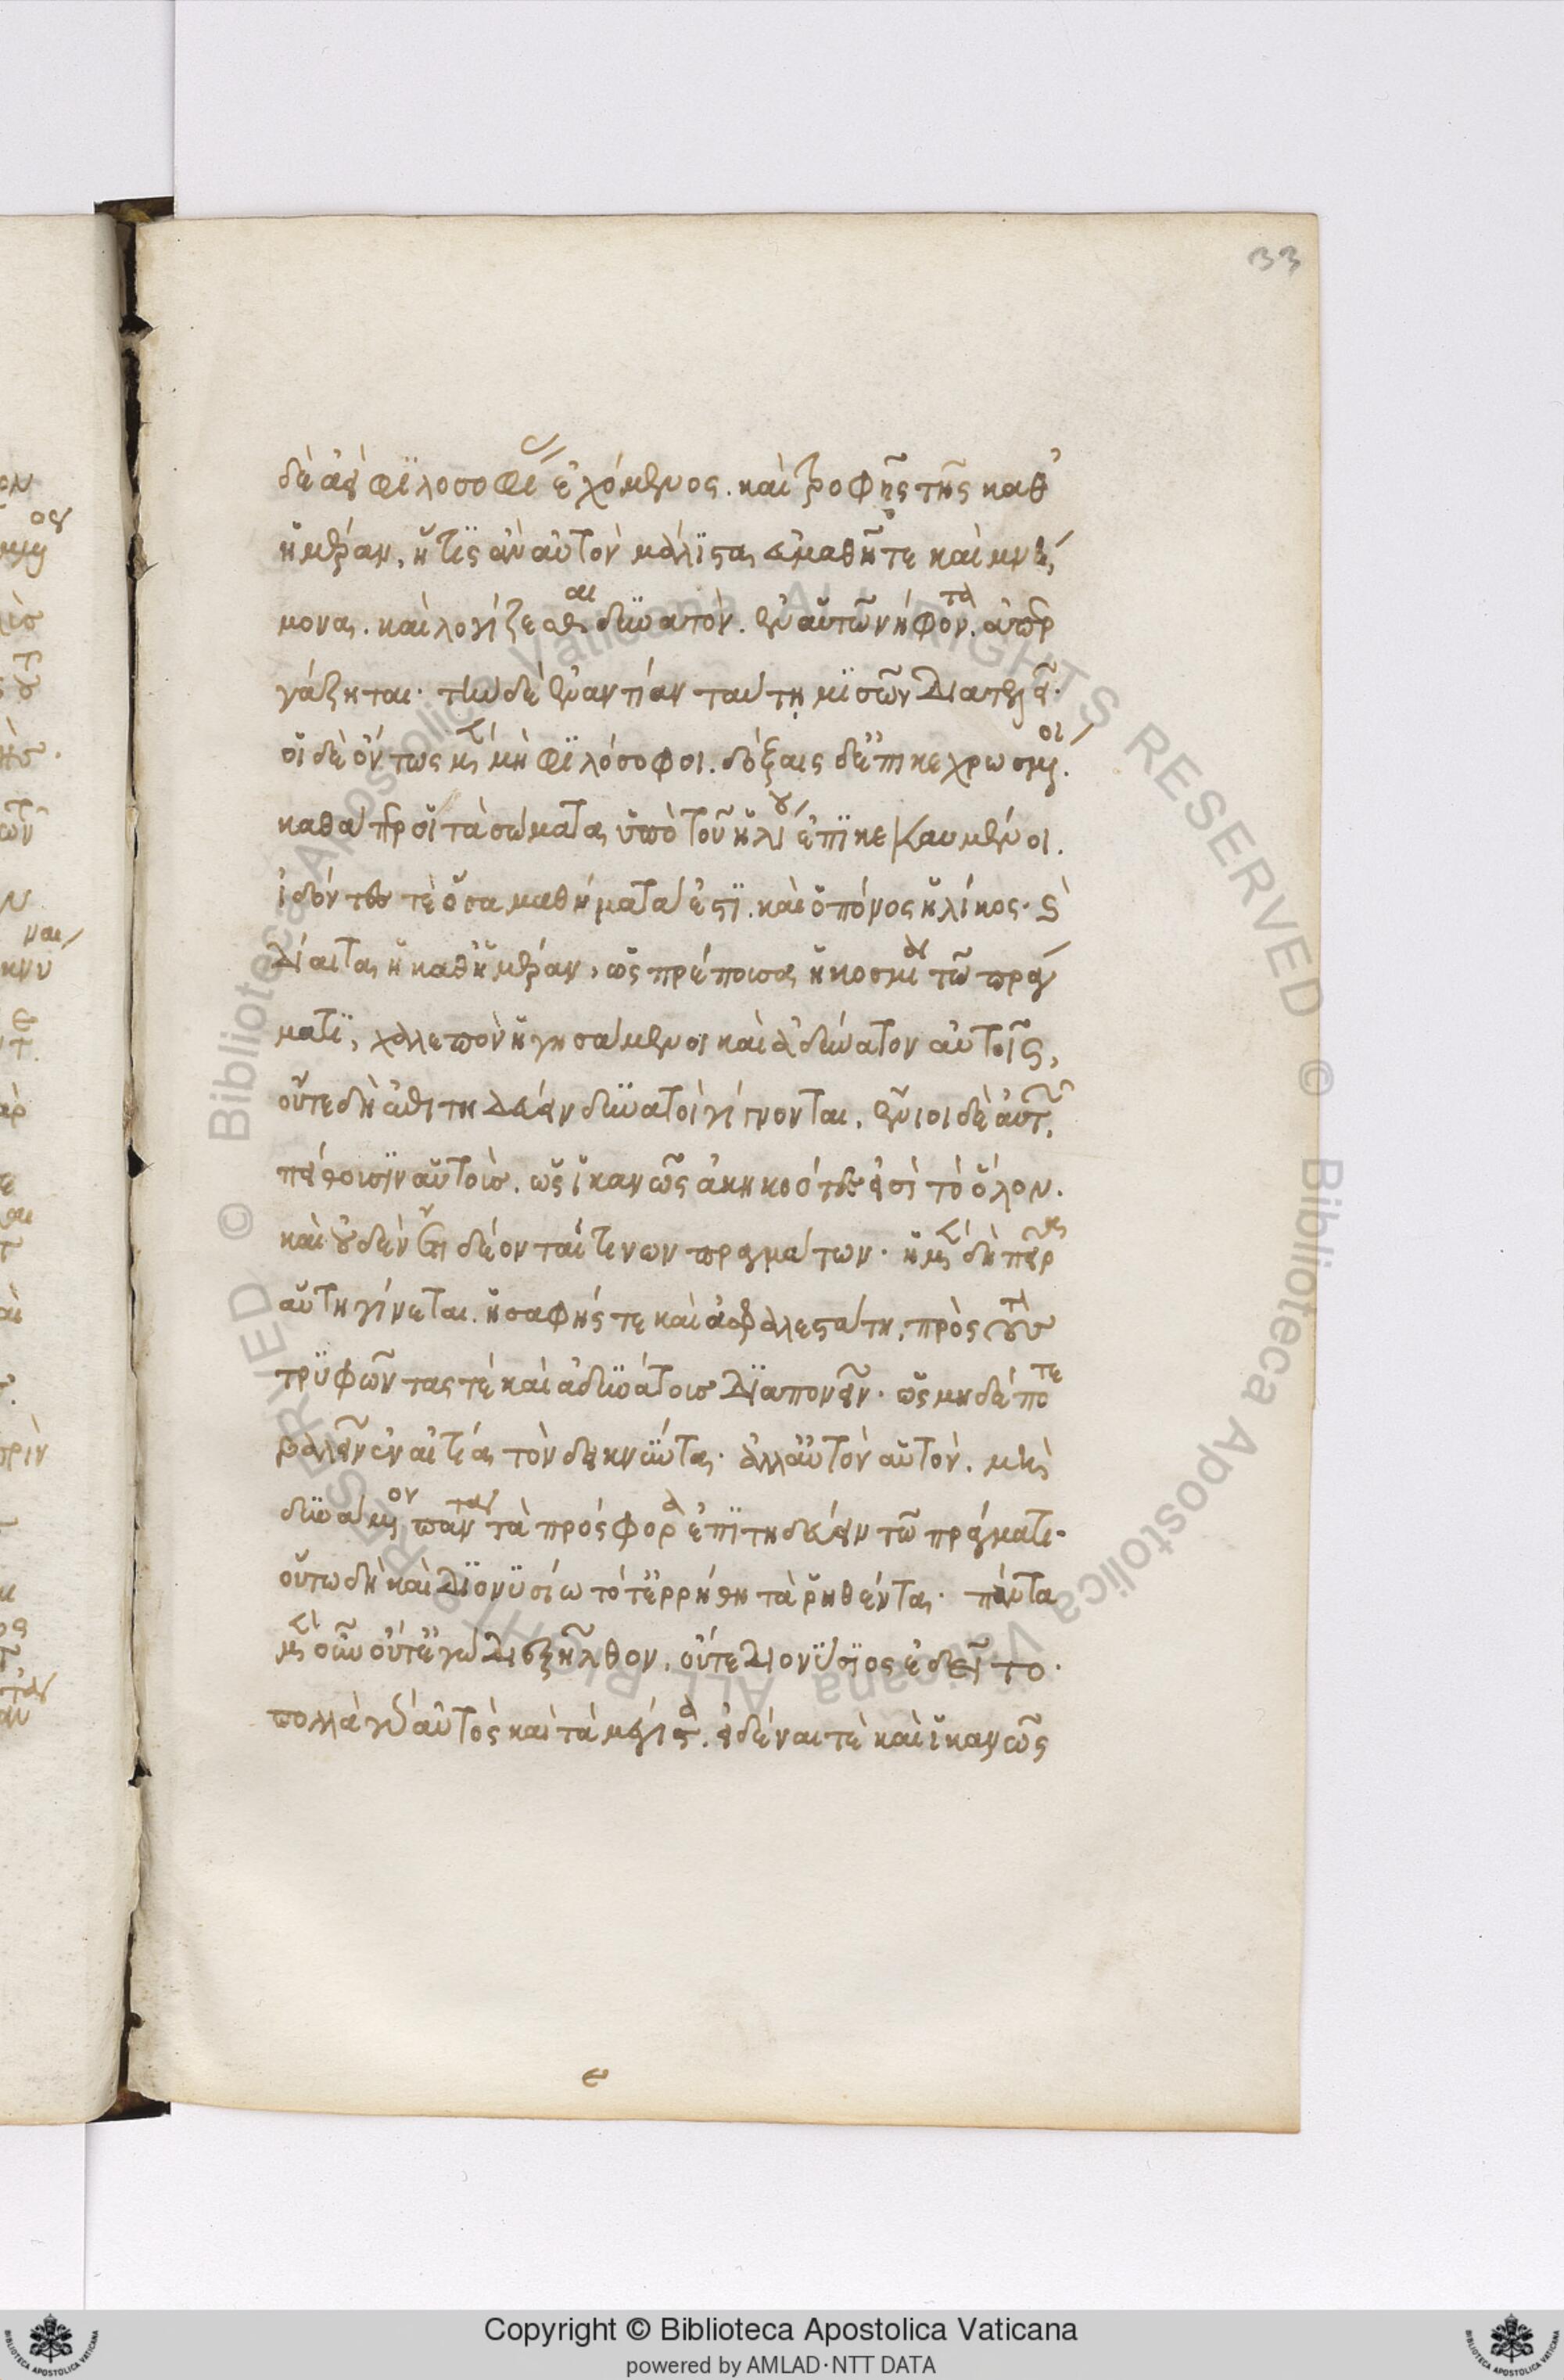 33
δὲ ἀεὶ φϊλοσοφίας ἐχόμενος. καὶ τροφῆς τῆς καθ᾽
ἡμέραν, ἥτις ἂν αὐτὸν μάλϊστα εὐμαθῆ τε καὶ μνή
μονα. καὶ λογίζεσθαι δυνατὸν. ἐν αὑτῶ νήφοντα. ἀπερ
γάζηται· τὴν δὲ ἐναντίαν ταύτῃ μϊσῶν διατελεῖ·
οἱ δὲ ὄντως μὲν μὴ φϊλόσοφοι. δόξαις δ᾽ ἐπικεχρωσμένοι.
καθάπερ οἱ τὰ σώματα ὑπὸ τοῦ ἡλίου ἐπϊκεκαυμένοι.
ἰδόντες τὲ ὅσα μαθήματά ἐστϊ. καὶ ὁ πόνος ἡλίκος· καὶ
δίαιτα ἡ καθ᾽ ἡμέραν, ὡς πρέπουσα ἡ κοσμία τῶ πράγ
ματϊ, χαλεπὸν ἡγησάμενοι καὶ ἀδύνατον αὑτοῖς,
οὔτε δὴ ἐπιτηδεύειν δυνατοὶ γίγνονται. ἔνιοι δὲ αὐτῶν
πείθουσϊν αὑτοὺς. ὡς ἱκανῶς ἀκηκοότες εἰσὶ τὸ ὅλον.
καὶ οὐδὲν ἔτι δέονταί τινων πραγμάτων· ἡ μὲν δὴ πεῖρα
αὕτη γίνεται. ἡ σαφής τε καὶ ἀσφαλεστάτη. πρὸς τοὺς
τρϋφῶντας τὲ καὶ ἀδυνάτους δϊαπονεῖν· ὡς μηδέποτε
βαλεῖν ἐν αἰτία τὸν δεικνύντα· ἀλλ᾽ αὐτὸν αὑτὸν. μὴ
δυνάμενον πάντα τὰ πρόσφορα ἐπϊτηδεύειν τῶ πράγματι·
οὕτω δὴ καὶ Δϊονϋσίω τότ᾽ ἐρρήθη τὰ ῥηθέντα· πάντα
μὲν οὖν οὔτ᾽ ἐγὼ διεξῆλθον, οὔτε Διονύσϊος ἐδεῖτο·
πολλὰ γὰρ αὐτὸς καὶ τὰ μέγιστα. εἰδέναι τὲ καὶ ἱκανῶς
ε
Copyright © Biblioteca Apostolica Vaticana
powered by AMLAD·NTT DATA